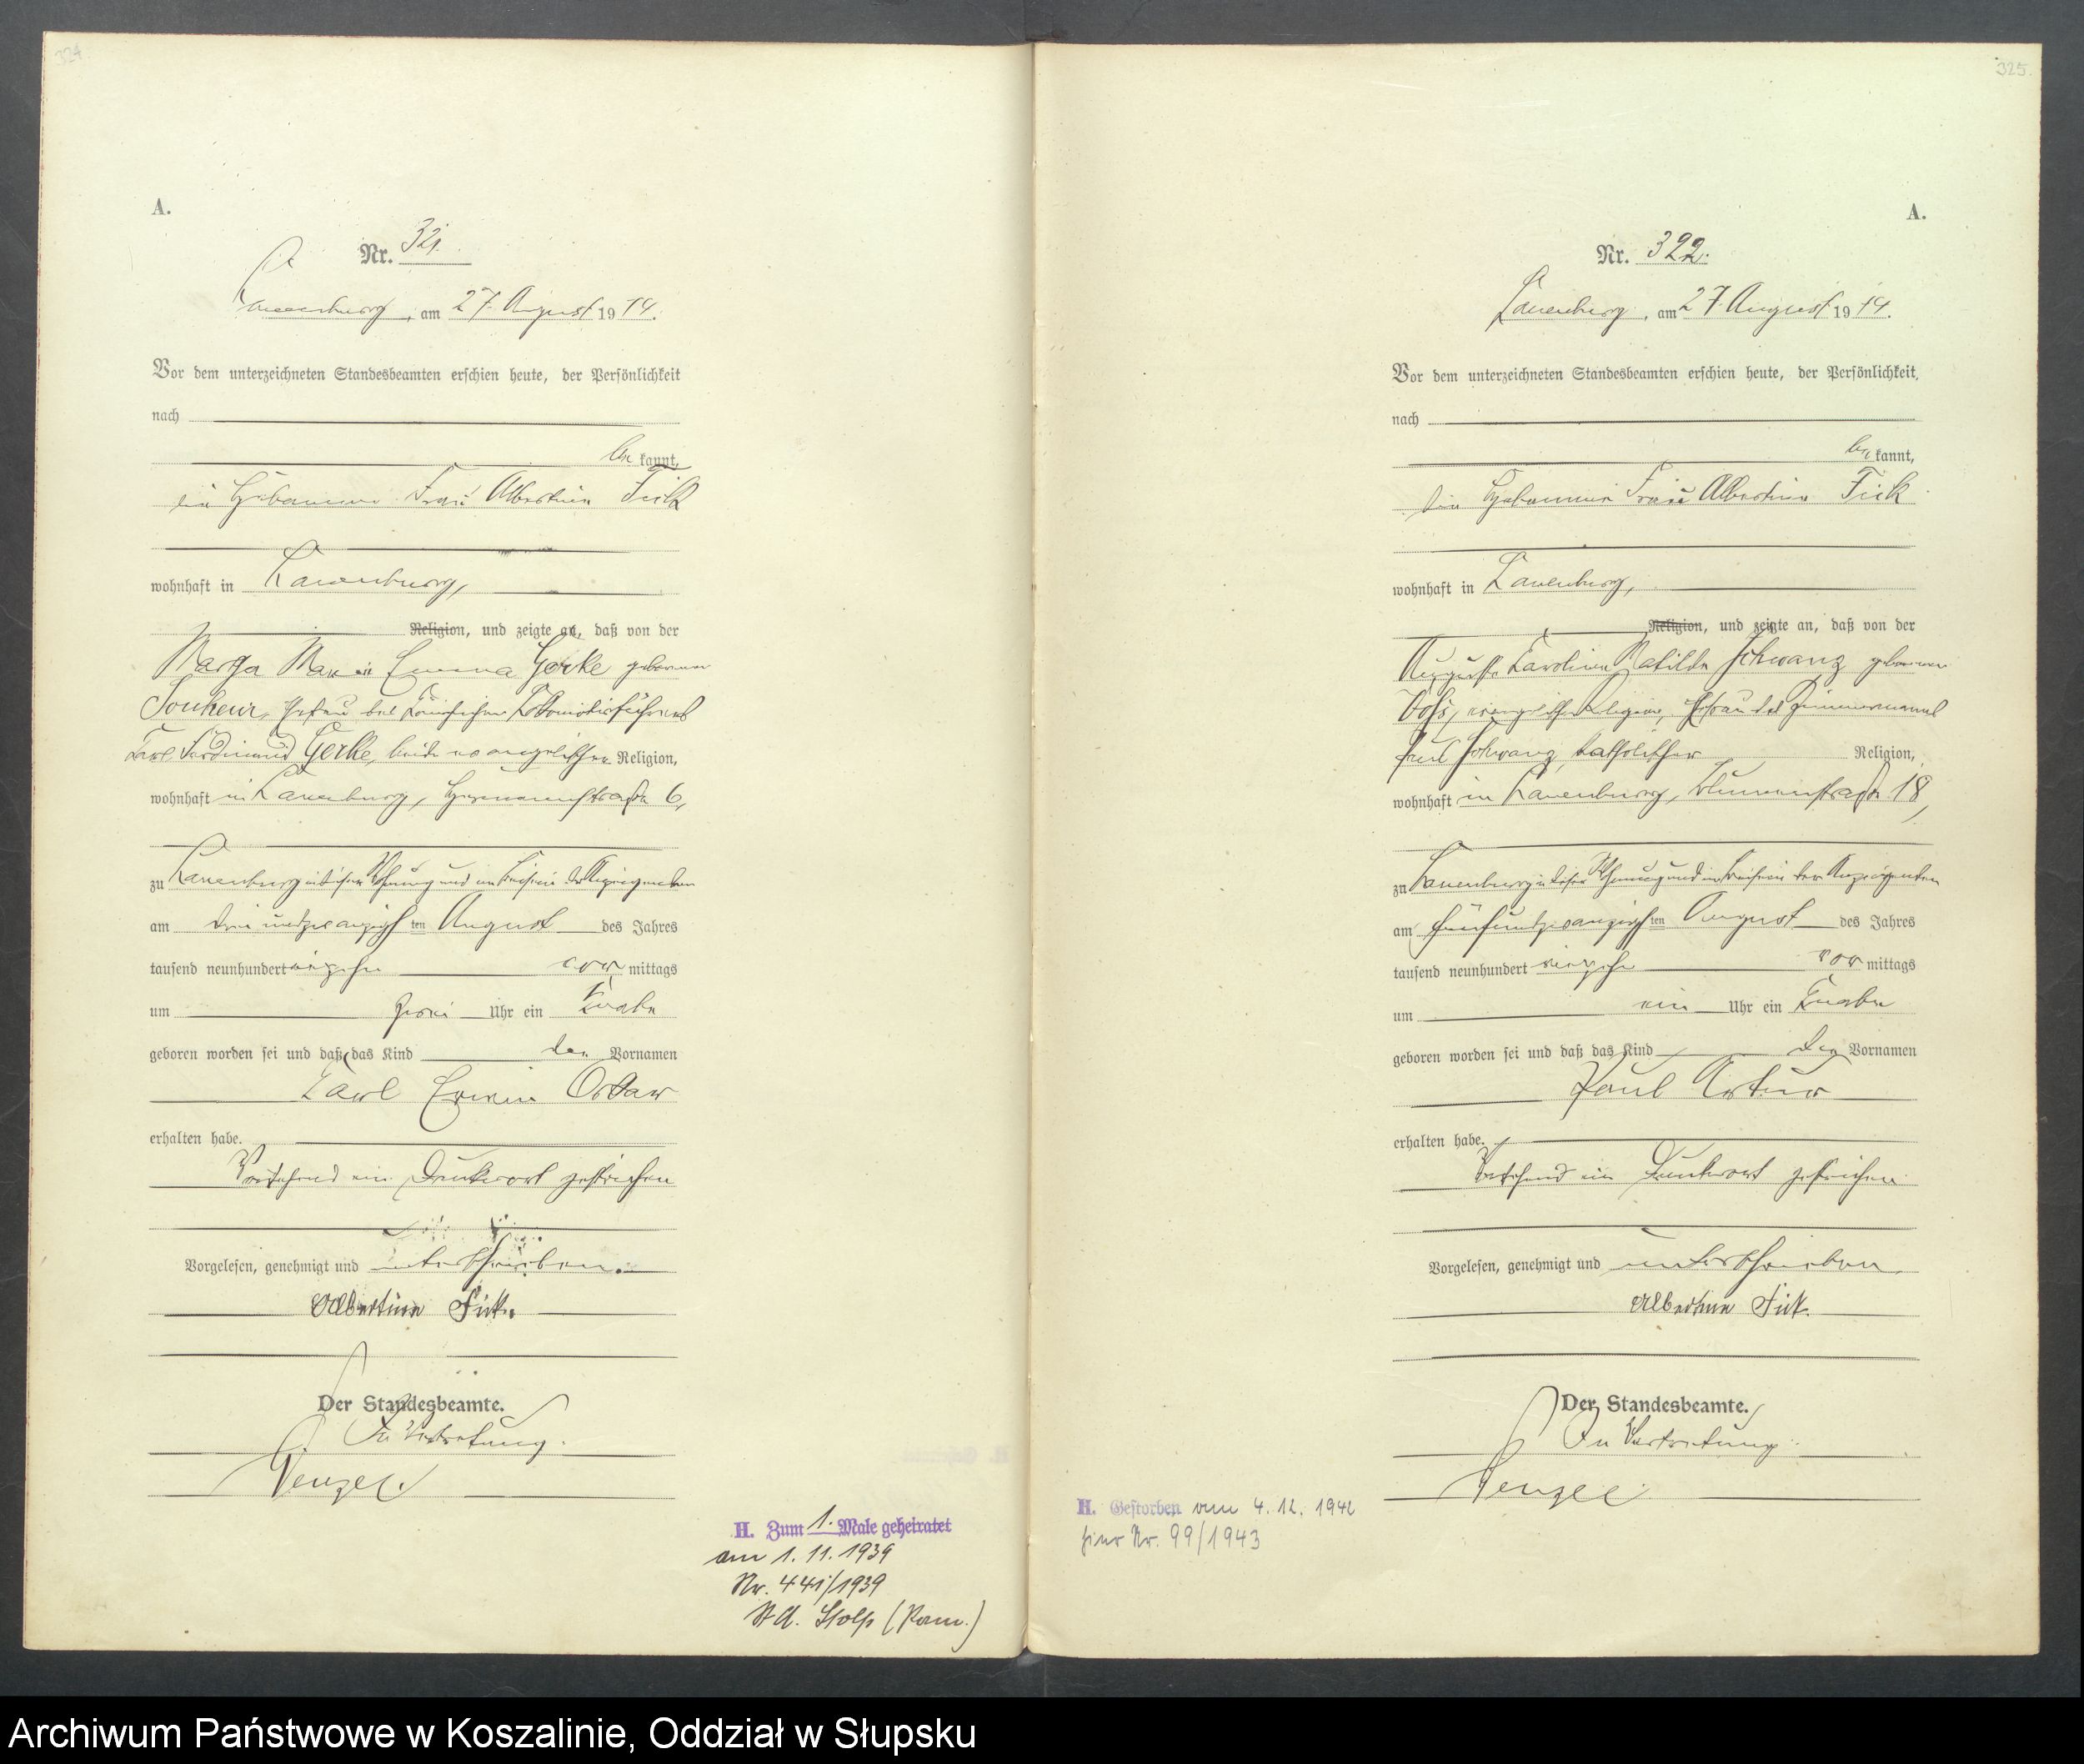 324.
A.
Nr. 321.
Lauenburg, am 27. August 1914.
Vor dem unterzeichneten Standesbeamten erschien heute, der Persönlichkeit
nach
bekannt,
die Hebamme Frau Albertine Fick
wohnhaft in Lauenburg,
Religion, und zeigte an, daß von der
Emma Gerke geborenen
Ehefrau des Königlichen Lokomotivführers
Karl Ferdinand Gerke, beide evangelischer Religion,
wohnhaft in Lauenburg, 6,
zu Lauenburg in dieser Wohnung und im Beisein der Anzeigenden
am drei und zwanzigsten August des Jahres
tausend neunhundert vierzehn vormittags
um zwei Uhr ein Knabe
geboren worden sei und daß das Kind den Vornamen
Karl Erwin Oskar
erhalten habe.
Vorstehend ein Druckwort gestrichen
Vorgelesen, genehmigt und unterschrieben.
Albertine Fick.
Der Standesbeamte.
In Vertretung.
Wenzel.
H. Zum 1. Male geheiratet
am 1. 11. 1939
Nr. 441/1939
St A. Stolp (Pom.)
325.
A.
Nr. 322.
Lauenburg, am 27 August 1914.
Vor dem unterzeichneten Standesbeamten erschien heute, der Persönlichkeit
nach
bekannt,
die Hebamme Frau Albertine Fick
wohnhaft in Lauenburg,
Religion, und zeigte an, daß von der
Auguste Karoline Matilde Schwanz geborenen
Voß, evangelischer Religion, Ehefrau des Zimmermanns
Paul Schwanz, katholischer Religion,
wohnhaft in Lauenburg, Blumenstraße 18,
zu Lauenburg in dieser Wohnung und im Beisein der Anzeigenden
am fünfundzwanzigsten August des Jahres
tausend neunhundert vierzehn vormittags
um ein Uhr ein Knabe
geboren worden sei und daß das Kind den Vornamen
Paul Artur
erhalten habe.
Vorstehend ein Druckwort gestrichen
Vorgelesen, genehmigt und unterschrieben
Albertine Fick.
Der Standesbeamte.
In Vertretung.
Wenzel.
H. Gestorben am 4. 12. 1942
hier Nr. 99/1943
Archiwum Państwowe w Koszalinie, Oddział w Słupsku